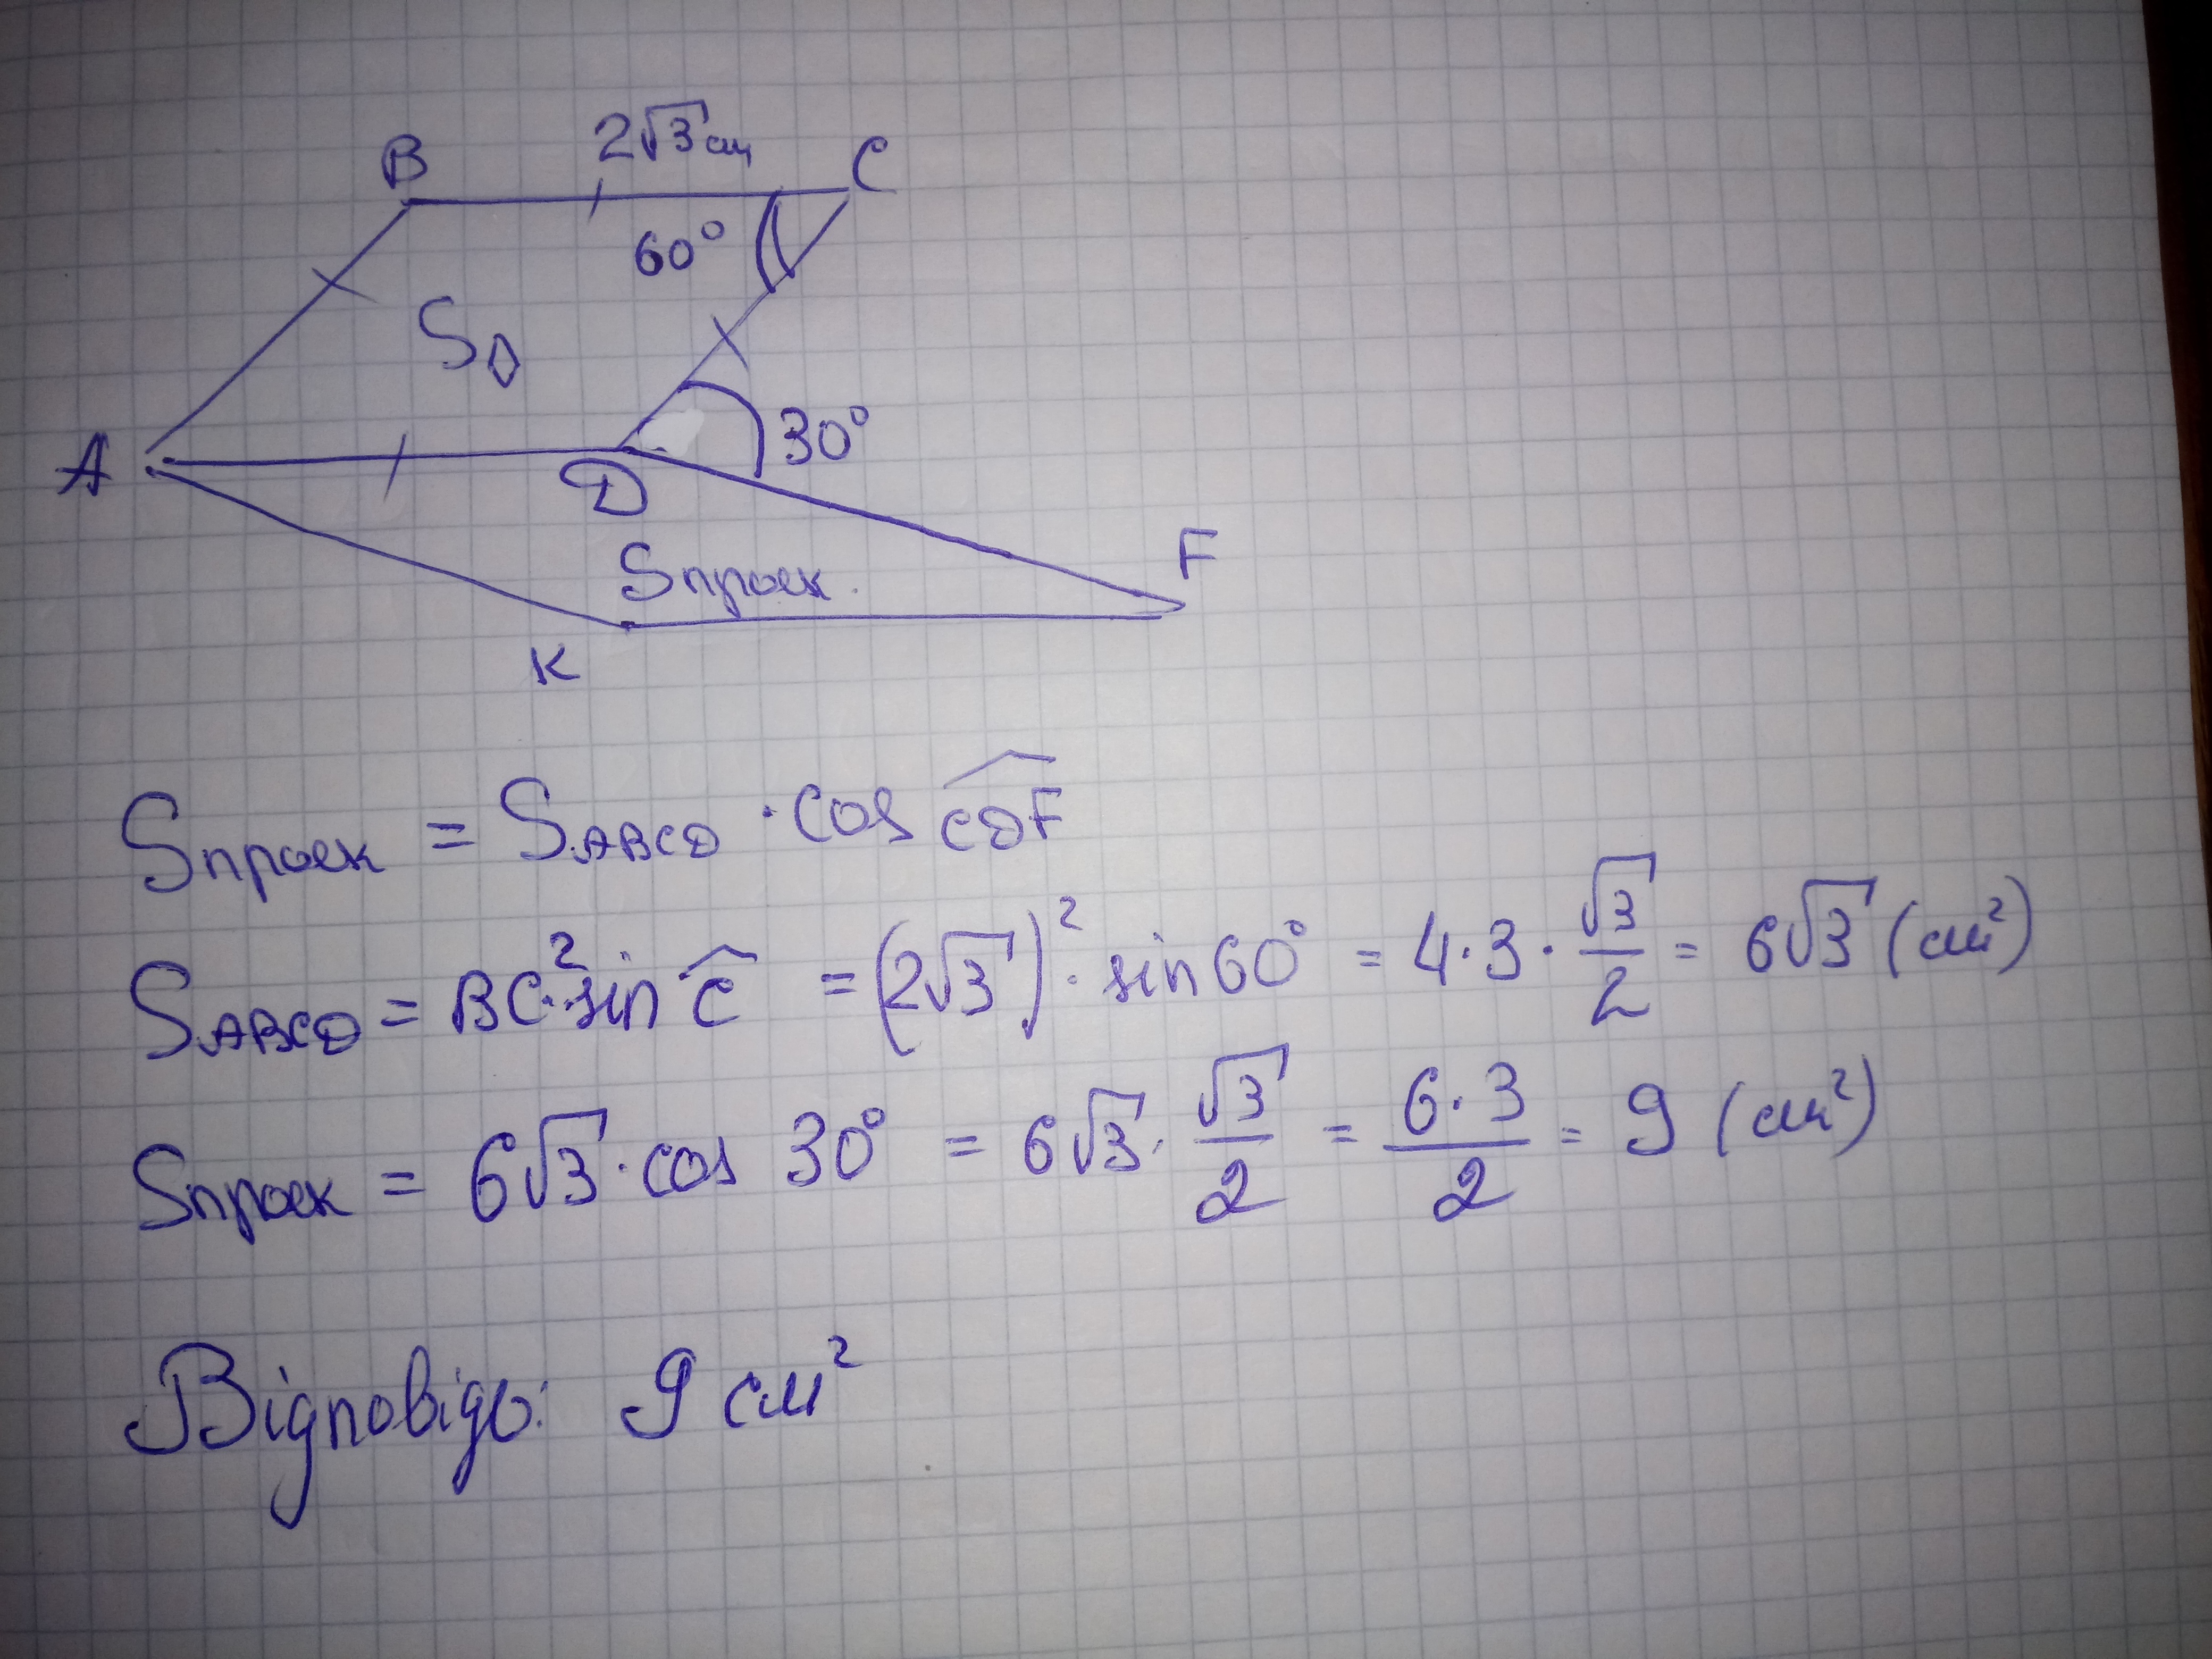 B 2√3 см C
60°
S◊
30°
A
D
F
Sпроек.
K
Sпроек = SABCD · cos CDF
SABCD = BC² · sin C = (2√3)² · sin 60° = 4 · 3 · √3/2 = 6√3 (см²)
Sпроек = 6√3 · cos 30° = 6√3 · √3/2 = 6·3/2 = 9 (см²)
Відповідь: 9 см²